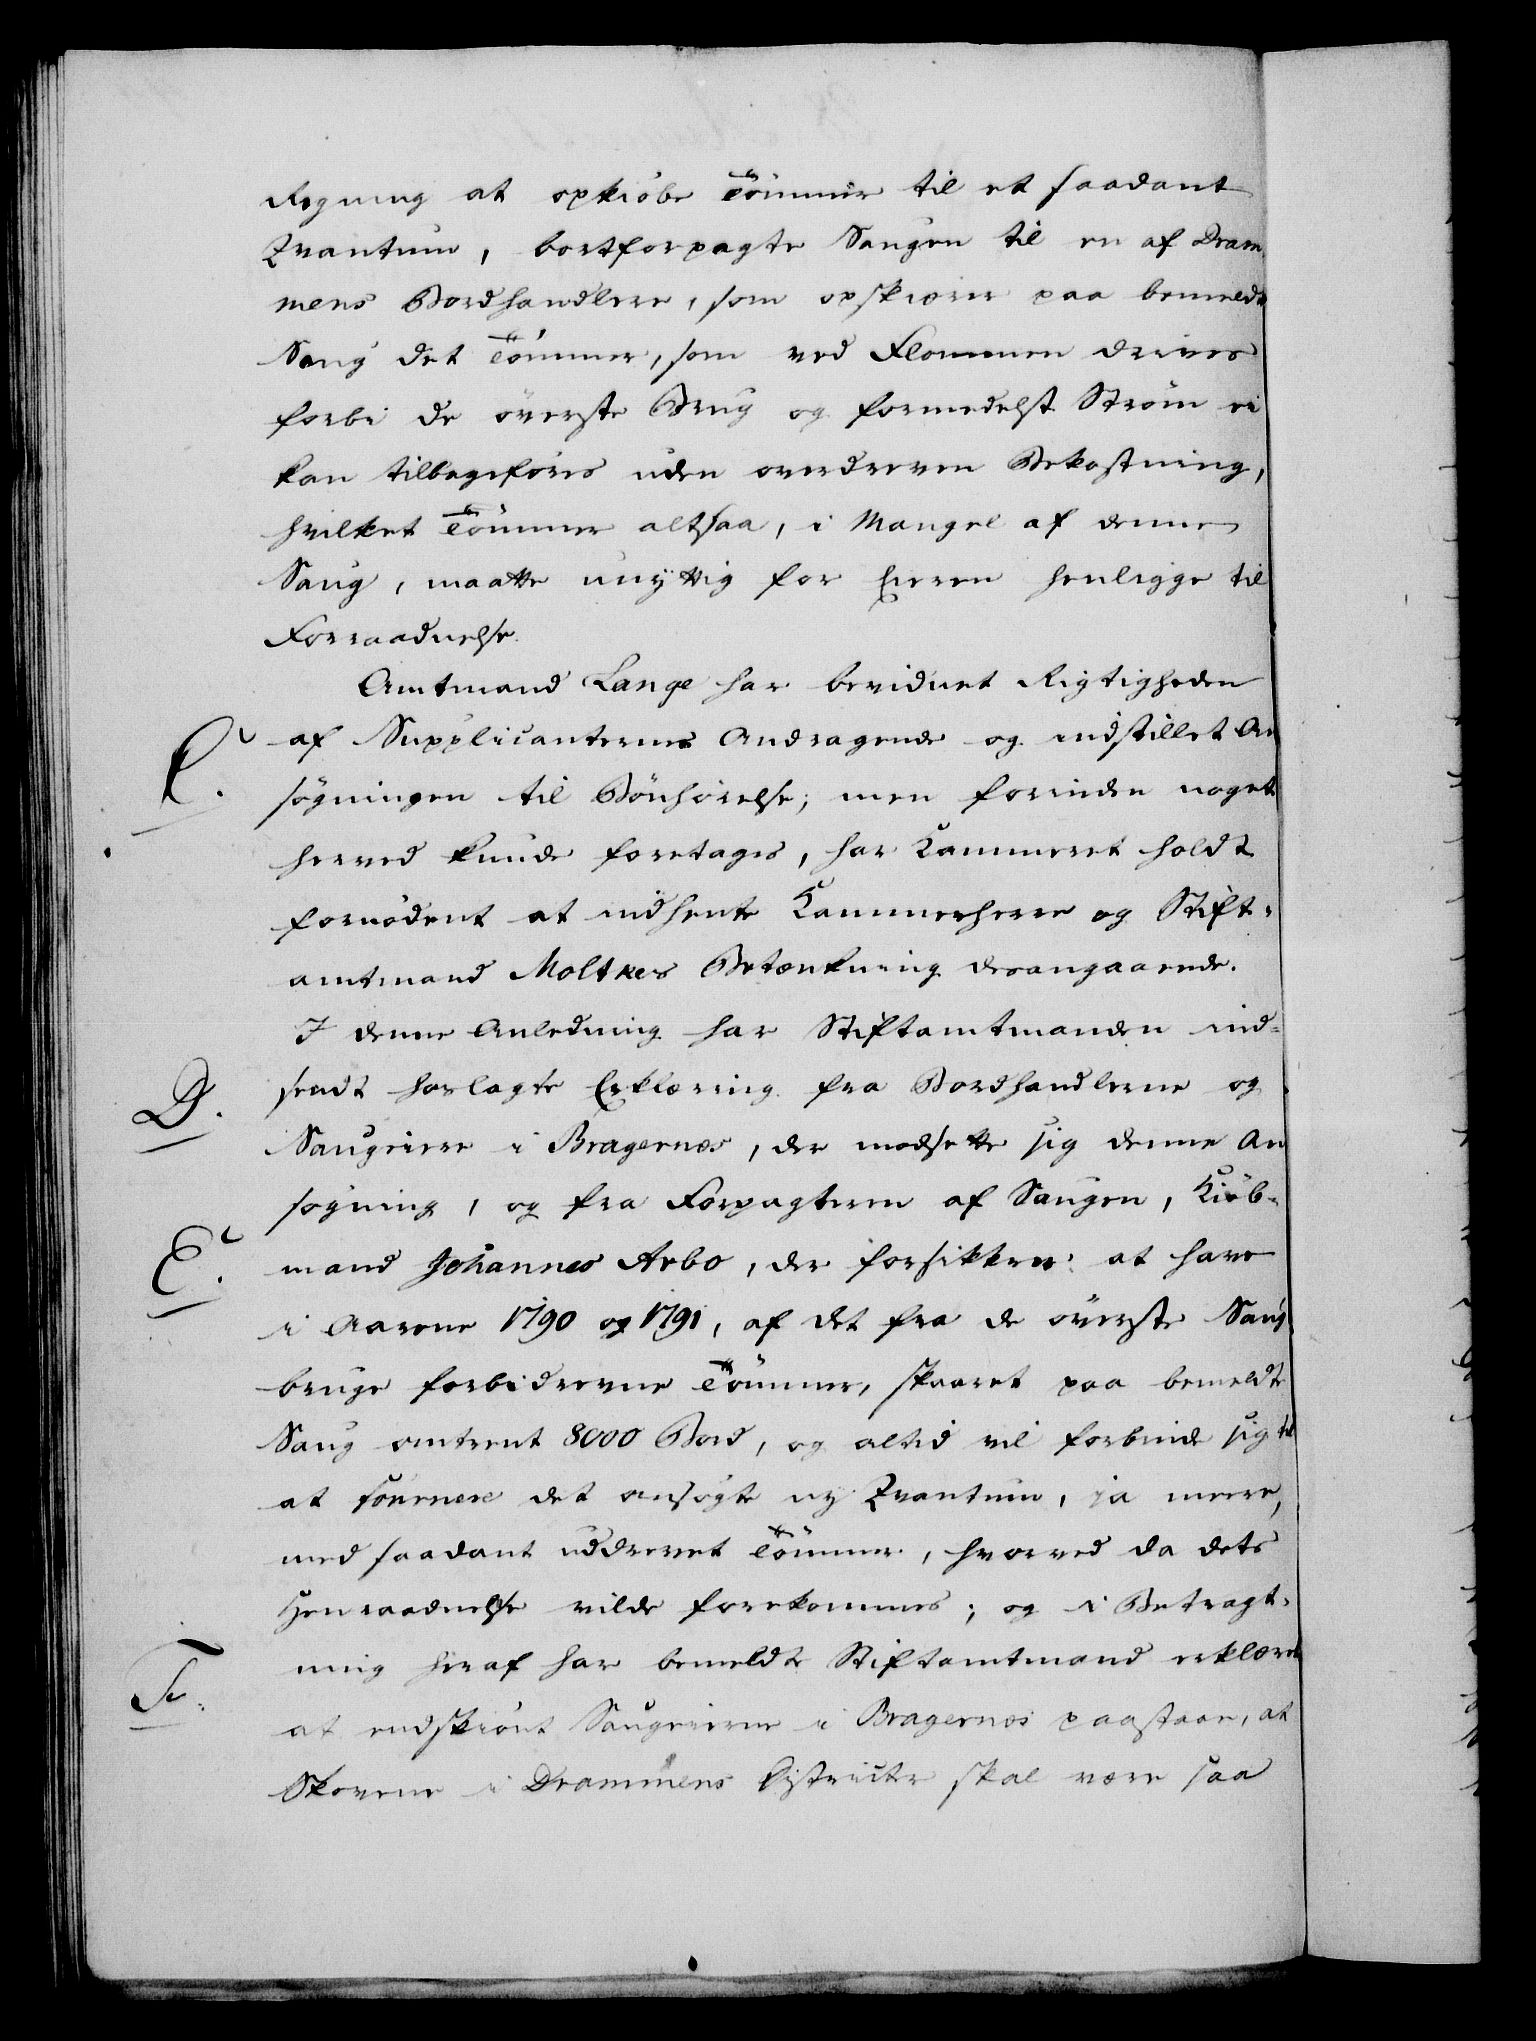 Regning at opkiøbe Tømmer til et saadant
Qvantum, bortforpagte Saugen til en af Dram-
mens Bordhandlere, som opskiærer paa bemeldte
Saug det Tømmer, som ved Flommen drives
forbi de øverste Brug og formedelst Strøm ei
kan tilbageføres uden overdreven Bekostning,
hvilket Tømmer altsaa, i Mangel af denne
Saug, maatte unyttig for Eieren henligge til
Forraadnelse.
Amtmand Lange har bevidnet Rigtigheden
C. af Supplicanternes Andragende og indstillet An
søgningen til Bønhørelse; men forinden noget
herved kunde foretages, har Kammeret holdt
fornødent at indhente Kammerherre og Stift-
amtmand Moltkes Betænkning desangaaende.
I denne Anledning har Stiftamtmanden ind-
D. sendt hoslagte Erklæring fra Bordhandlerne og
Saugeiere i Bragernes, der modsette sig denne An
søgning, og fra Forpagteren af Saugen, Kiøb-
E. mand Johannes Arbo, der forsikkrer: at have
i Aarene 1790 og 1791, af det fra de øverste Saug
bruge forbidrevne Tømmer, skaaret paa bemeldte
Saug omtrent 8000 Bord, og altid vil forbinde sig til
at fournere det ansøgte ny Qvantum, ja meere,
med saadant uddrevet Tømmer, hvorved da dets
Henraadnelse vilde forekommes; og i Betragt-
ning heraf har bemeldte Stiftamtmand erklæret
F. at endskiønt Saugeierne i Bragernes paastaae, at
Skovene i Drammens Districter skal være saa